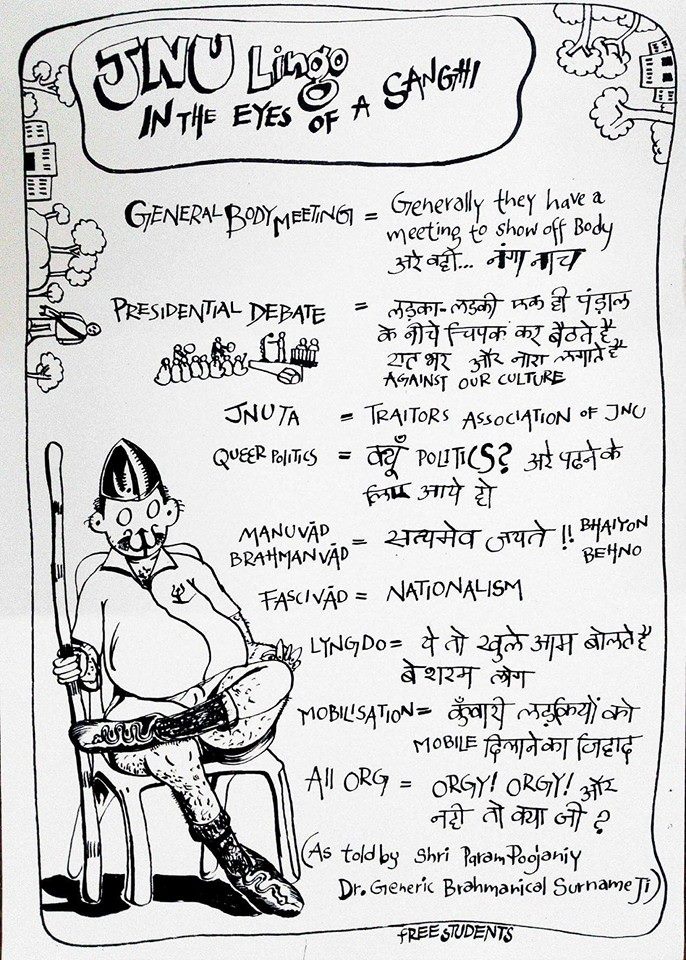 JNU Lingo
IN THE EYES OF A SANGHI
GENERAL BODY MEETING = Generally they have a
meeting to show off Body
अरे वही... नंगा नाच
PRESIDENTIAL DEBATE = लड़का-लड़की एक ही पंड़ाल
के नीचे चिपक कर बैठते है
रात भर और नारा लगाते है
AGAINST OUR CULTURE
JNUTA = TRAITORS ASSOCIATION OF JNU
QUEER POLITICS = क्यूँ POLITICS? अरे पढने के
लिए आये हो
MANUVĀD
BRAHMANVĀD = सत्यमेव जयते !! BHAIYON
BEHNO
FASCIVĀD = NATIONALISM
LYNGDO = ये तो खुले आम बोलते है
बेशरम लोग
MOBILISATION = कुँवारी लड़कियों को
MOBILE दिलाने का जिहाद
All ORG = ORGY! ORGY! और
नही तो क्या जी ?
(As told by Shri Param Poojaniy
Dr. Generic Brahmanical Surname Ji)
fREE STUDENTS